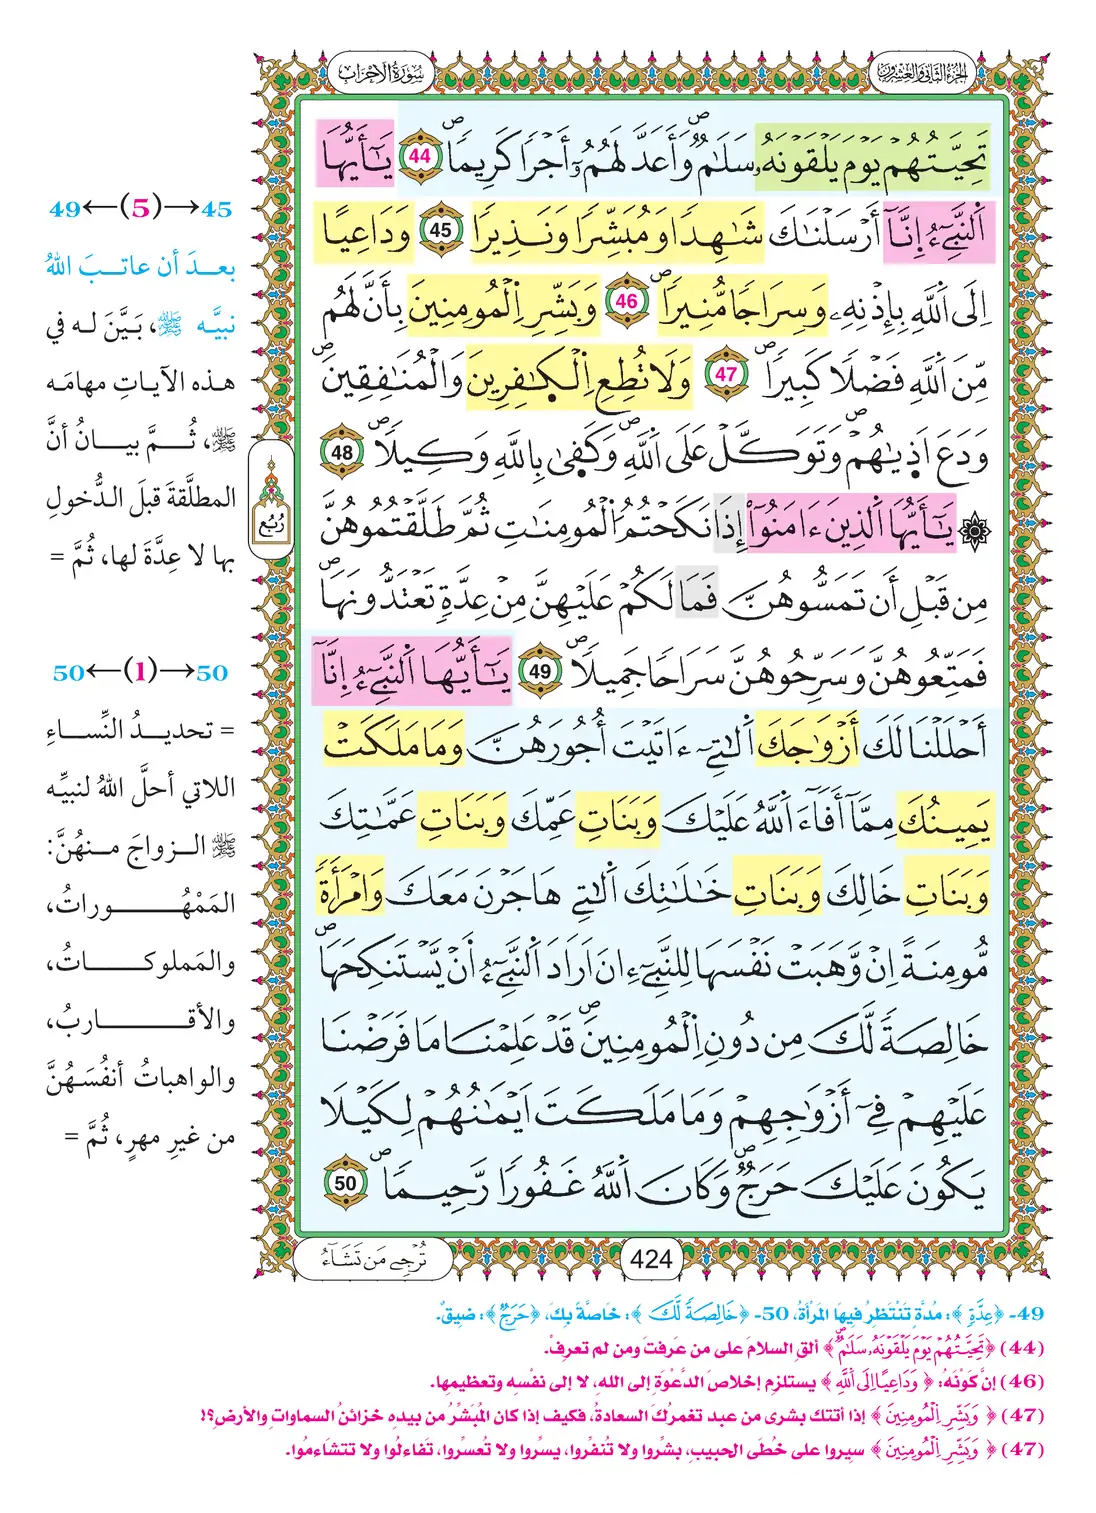 الجزء الثاني والعشرون
سورة الأحزاب
تَحِيَّتُهُمْ يَوْمَ يَلْقَوْنَهُۥ سَلَٰمٌۖ وَأَعَدَّ لَهُمُۥٓ أَجْرًا كَرِيمًاۖ 44 يَٰٓأَيُّهَا
اَلنَّبِيٓءُ إِنَّآ أَرْسَلْنَٰكَ شَٰهِدًا وَمُبَشِّرًا وَنَذِيرًا 45 وَدَاعِيًا
اِلَى اَللَّهِ بِإِذْنِهِۦ وَسِرَاجًا مُّنِيرًاۖ 46 وَبَشِّرِ اِلْمُومِنِينَ بِأَنَّ لَهُم
مِّنَ اَللَّهِ فَضْلًا كَبِيرًاۖ 47 وَلَا تُطِعِ اِلْكٰفِرِينَ وَالْمُنَٰفِقِينَۖ
وَدَعَ اَذٜيٰهُمْۖ وَتَوَكَّلْ عَلَى اَللَّهِۖ وَكَفٜيٰ بِاللَّهِ وَكِيلًاۖ 48
۞ يَٰٓأَيُّهَا اَلذِينَ ءَامَنُوٓاْ إِذَا نَكَحْتُمُ اُلْمُومِنَٰتِ ثُمَّ طَلَّقْتُمُوهُنَّ
مِن قَبْلِ أَن تَمَسُّوهُنَّ فَمَا لَكُمْ عَلَيْهِنَّ مِنْ عِدَّةٍ تَعْتَدُّونَهَاۖ
فَمَتِّعُوهُنَّ وَسَرِّحُوهُنَّ سَرَاحًا جَمِيلًاۖ 49 يَٰٓأَيُّهَا اَلنَّبِيٓءُ اِنَّآ
أَحْلَلْنَا لَكَ أَزْوَٰجَكَ اَلٰتِےٓ ءَاتَيْتَ أُجُورَهُنَّ وَمَا مَلَكَتْ
يَمِينُكَ مِمَّآ أَفَآءَ اَللَّهُ عَلَيْكَ وَبَنَاتِ عَمِّكَ وَبَنَاتِ عَمَّٰتِكَ
وَبَنَاتِ خَالِكَ وَبَنَاتِ خَٰلَٰتِكَ اَلٰتِے هَاجَرْنَ مَعَكَ وَامْرَأَةً
مُّومِنَةً اِنْ وَّهَبَتْ نَفْسَهَا لِلنَّبِيٓءِ انَ اَرَادَ اَلنَّبِيٓءُ أَنْ يَّسْتَنكِحَهَاۖ
خَالِصَةً لَّكَ مِن دُونِ اِلْمُومِنِينَۖ قَدْ عَلِمْنَا مَا فَرَضْنَا
عَلَيْهِمْ فِےٓ أَزْوَٰجِهِمْ وَمَا مَلَكَتَ اَيْمَٰنُهُمْ لِكَيْلَا
يَكُونَ عَلَيْكَ حَرَجٌۖ وَكَانَ اَللَّهُ غَفُورًا رَّحِيمًاۖ 50
رُبُع
424
تُرْجِے مَن تَشَآءُ
49←(5)→45
بعدَ أن عاتبَ اللهُ
نبيَّه ﷺ، بَيَّنَ له في
هذه الآياتِ مهامَه
ﷺ، ثُمَّ بيانُ أنَّ
المطلَّقةَ قبلَ الدُّخولِ
بها لا عِدَّةَ لها، ثُمَّ =
50←(1)→50
= تحديدُ النِّساءِ
اللاتي أحلَّ اللهُ لنبيِّه
ﷺ الزواجَ منهُنَّ:
المَمْهُوراتُ،
والمَملوكاتُ،
والأقاربُ،
والواهباتُ أنفُسَهُنَّ
من غيرِ مهرٍ، ثُمَّ =
49- ﴿عِدَّةٍ﴾: مُدَّةٍ تَنْتَظِرُ فِيهَا المَرْأَةُ، 50- ﴿خَالِصَةً لَّكَ﴾: خَاصَّةً بِكَ، ﴿حَرَجٌ﴾: ضِيقٌ.
(44) ﴿تَحِيَّتُهُمْ يَوْمَ يَلْقَوْنَهُۥ سَلَٰمٌۖ﴾ ألقِ السلامَ على من عَرفتَ ومن لم تعرِفْ.
(46) إنَّ كَوْنَهُ: ﴿وَدَاعِيًا اِلَى اَللَّهِ﴾ يستلزم إخلاصَ الدَّعْوَةِ إلى اللهِ، لا إلى نفْسِه وتعظيمِها.
(47) ﴿وَبَشِّرِ اِلْمُومِنِينَ﴾ إذا أتتك بشرى من عبد تغمرُكَ السعادةُ، فكيف إذا كان المُبَشِّرُ من بيدِه خزائنُ السماوات والأرض؟!
(47) ﴿وَبَشِّرِ اِلْمُومِنِينَ﴾ سيروا على خُطَى الحبيبِ، بشِّروا ولا تُنفِّروا، يسِّروا ولا تُعسِّروا، تَفاءلُوا ولا تتشَاءمُوا.